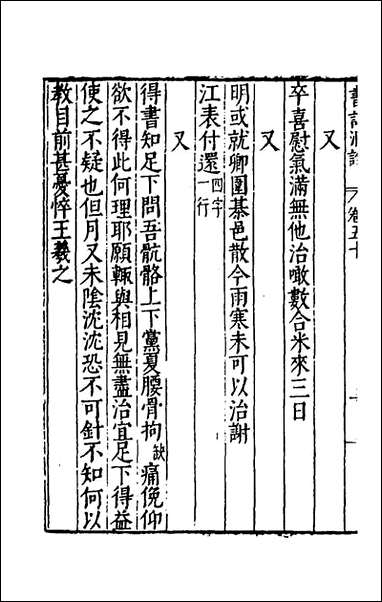 書記洞詮 卷五十
又
卒喜慰氣滿無他治噉數合米來三日
又
明或就卿圍棊邑散今雨寒未可以治謝
江表付還四字一行
又
得書知足下問吾骯骼上下黨夏腰骨拘缺痛俛仰
欲不得此何理耶願輒與相見無盡治宜足下得益
使之不疑也但月又未陰沈沈恐不可針不知何以
教目前甚憂悴王羲之